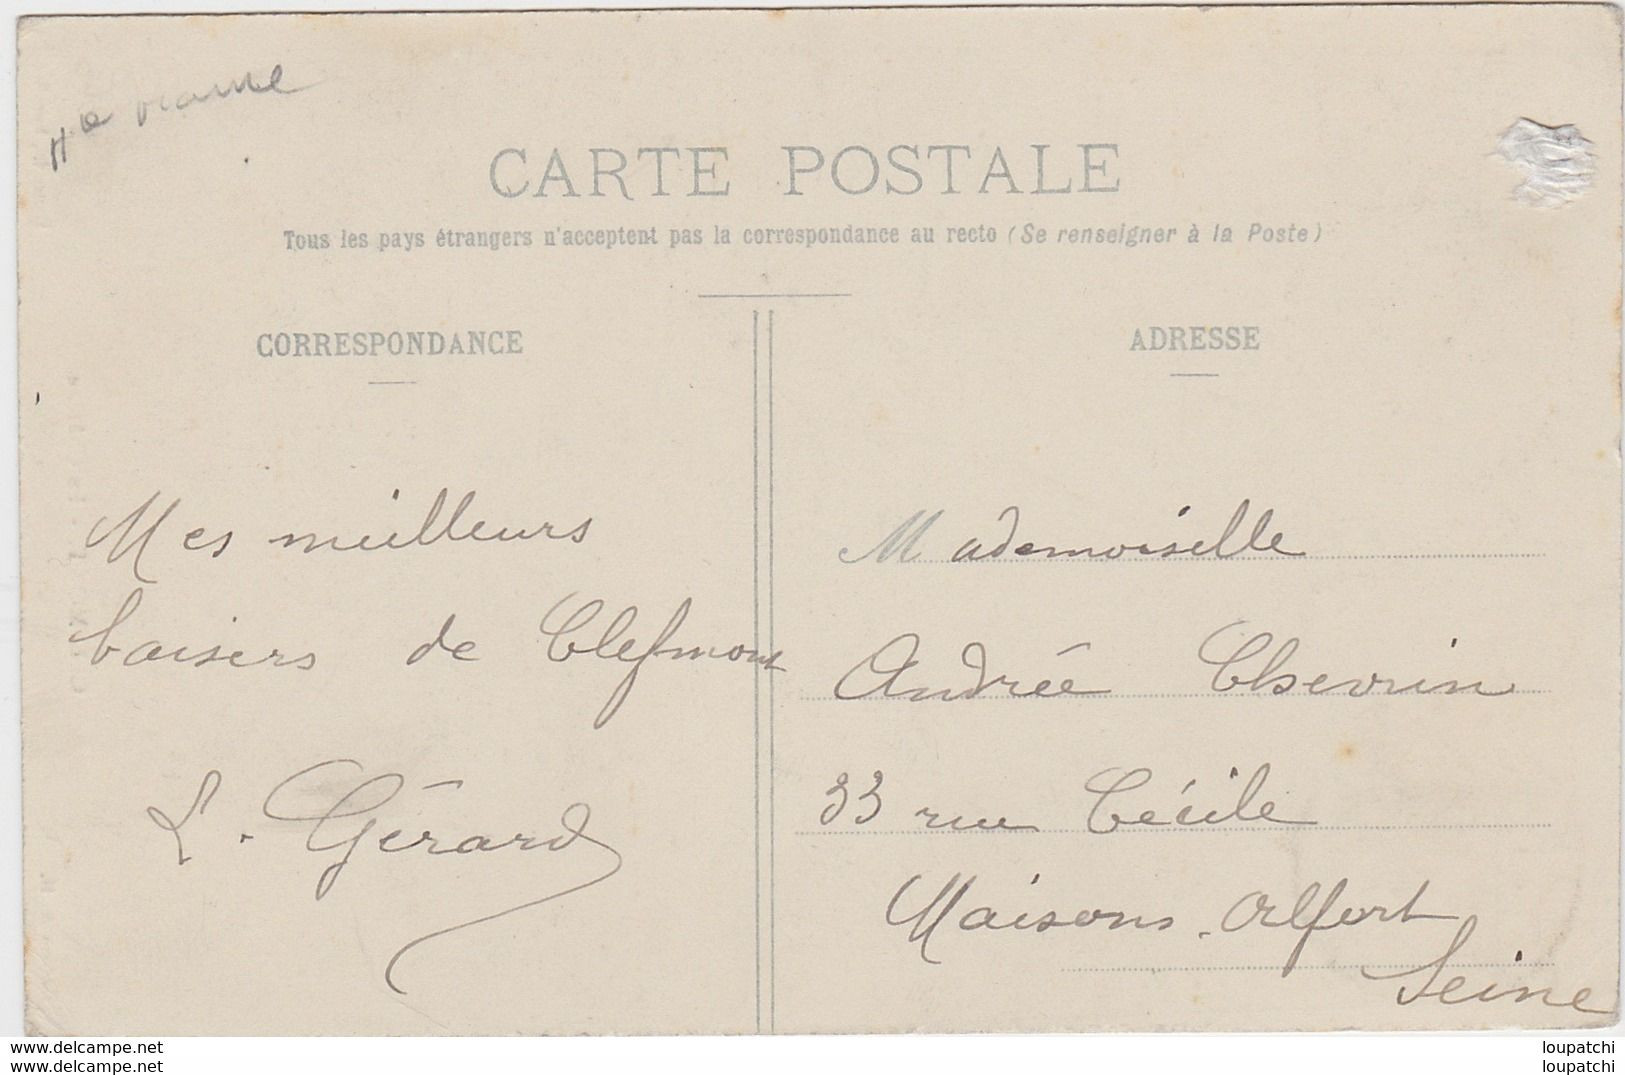 Hte Marne
CARTE POSTALE
Tous les pays étrangers n'acceptent pas la correspondance au recto (Se renseigner à la Poste)
CORRESPONDANCE
ADRESSE
Mes meilleurs
baisers de Clefmont
L. Gérard
Mademoiselle
Andrée Chevrin
33 rue Cécile
Maisons-Alfort
Seine
www.delcampe.net
www.delcampe.net
loupatchi
loupatchi